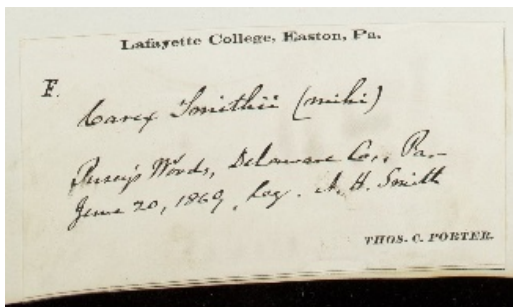 Lafayette College, Easton, Pa.
F.
Carex Smithii (mihi)
Woods, Delaware Co., Pa.
June 20, 1869, Leg. A. H. Smith
THOS. C. PORTER.